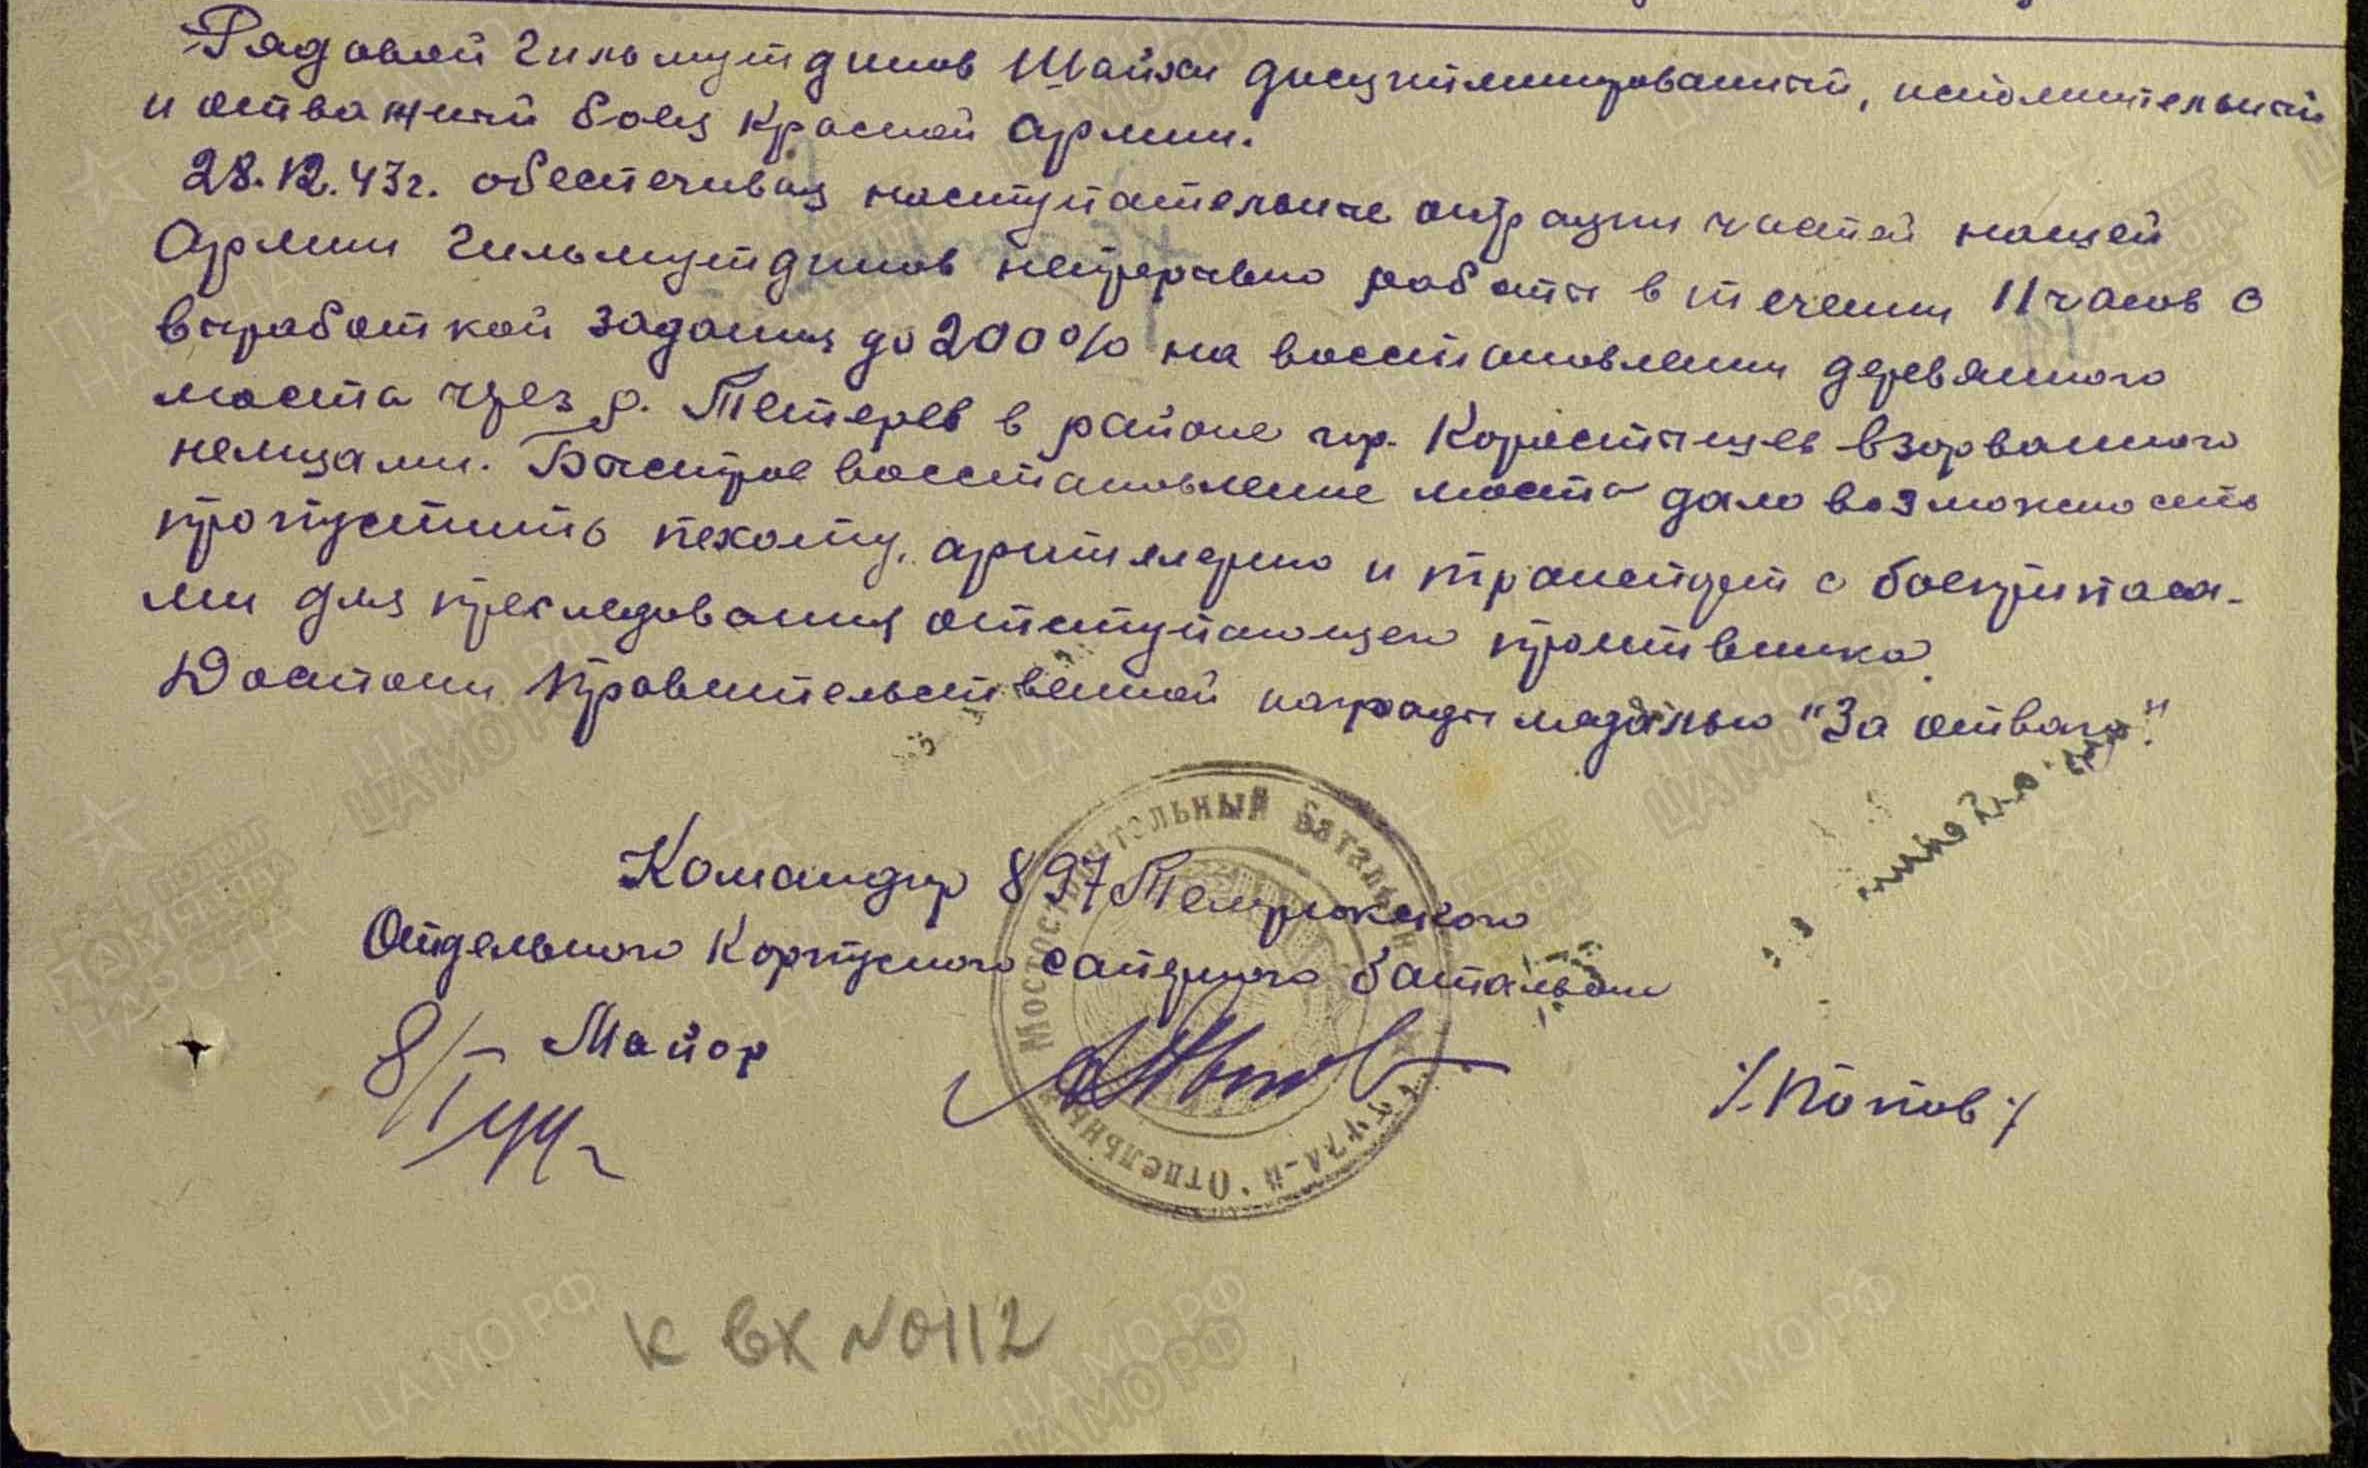 Рядовой Гильмутдинов Шайхи дисциплинированный, исполнительный
и отважный боец Красной Армии.
28.12.43г. обеспечивая наступательные операции частей нашей
Армии Гильмутдинов непрерывно работая в течении 11 часов с
выработкой задания до 200% на восстановлении деревянного
моста через р. Тетерев в районе гор. Коростышев взорванного
немцами. Быстрое восстановление моста дало возможность
пропустить пехоту, артилерию и транспорт с боеприпаса-
ми для преследования отступающего противника.
Достоин Правительственной награды медалью "За отвагу".
Командир 897 Темрюкского
Отдельного Корпусного саперного батальона
Майор /Попов/
8/I 44г
Мостостроительный Батальон
Отдельный
к вх №0112
ЦАМО РФ
ПАМЯТЬ
НАРОДА